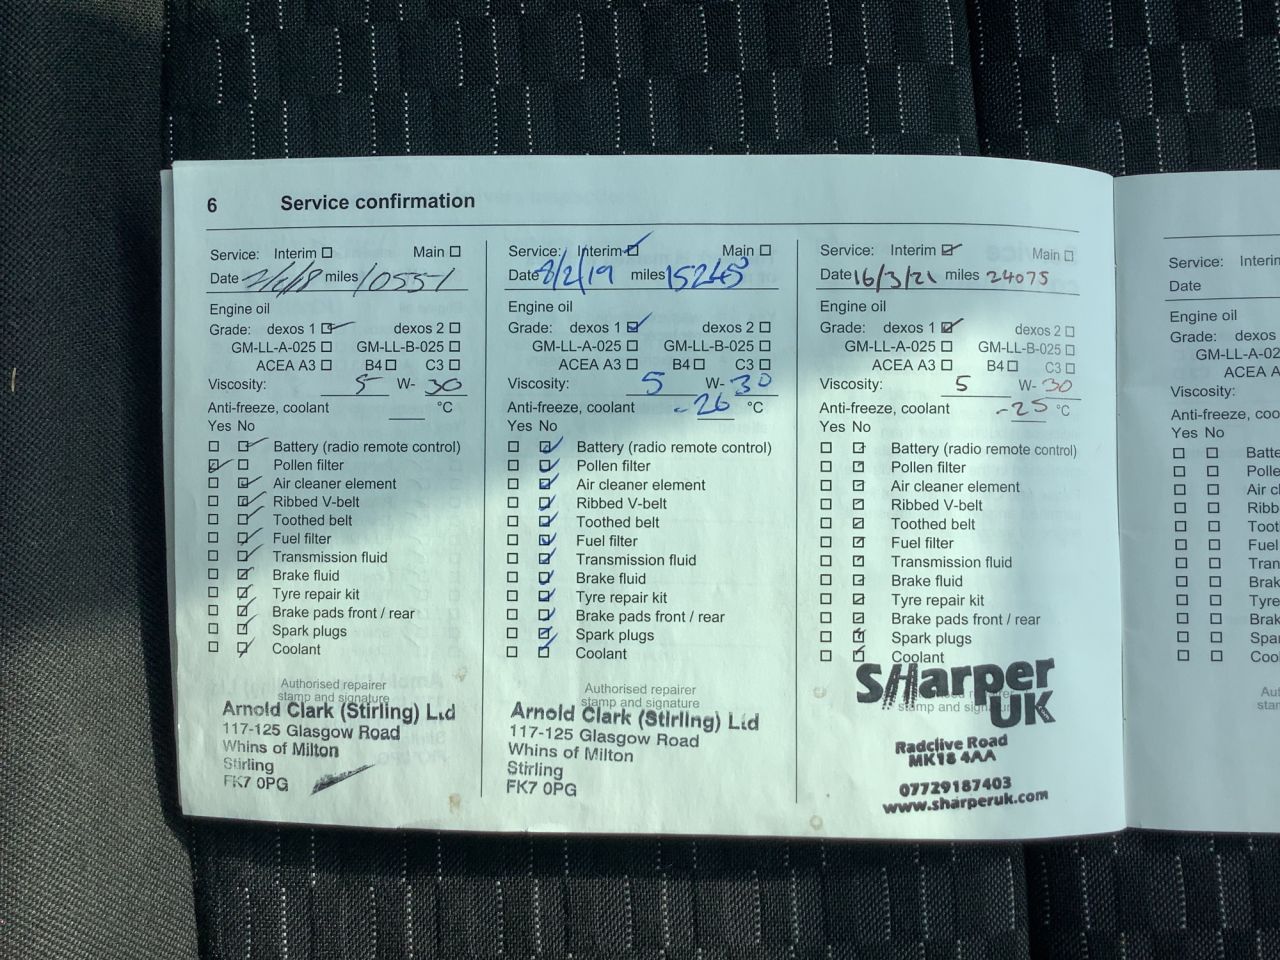 6 Service confirmation
Service: Interim Main
Date miles 10551
Engine oil
Grade: dexos 1 dexos 2
GM-LL-A-025 GM-LL-B-025
ACEA A3 B4 C3
Viscosity: 5 W- 30
Anti-freeze, coolant °C
Yes No
Battery (radio remote control)
Pollen filter
Air cleaner element
Ribbed V-belt
Toothed belt
Fuel filter
Transmission fluid
Brake fluid
Tyre repair kit
Brake pads front / rear
Spark plugs
Coolant
Authorised repairer
stamp and signature
Arnold Clark (Stirling) Ltd
117-125 Glasgow Road
Whins of Milton
Stirling
FK7 0PG
Service: Interim Main
Date 8/2/19 miles 15245
Engine oil
Grade: dexos 1 dexos 2
GM-LL-A-025 GM-LL-B-025
ACEA A3 B4 C3
Viscosity: 5 W- 30
Anti-freeze, coolant -26 °C
Yes No
Battery (radio remote control)
Pollen filter
Air cleaner element
Ribbed V-belt
Toothed belt
Fuel filter
Transmission fluid
Brake fluid
Tyre repair kit
Brake pads front / rear
Spark plugs
Coolant
Authorised repairer
stamp and signature
Arnold Clark (Stirling) Ltd
117-125 Glasgow Road
Whins of Milton
Stirling
FK7 0PG
Service: Interim Main
Date 16/3/21 miles 24075
Engine oil
Grade: dexos 1 dexos 2
GM-LL-A-025 GM-LL-B-025
ACEA A3 B4 C3
Viscosity: 5 W- 30
Anti-freeze, coolant -25 °C
Yes No
Battery (radio remote control)
Pollen filter
Air cleaner element
Ribbed V-belt
Toothed belt
Fuel filter
Transmission fluid
Brake fluid
Tyre repair kit
Brake pads front / rear
Spark plugs
Coolant
stamp and
SHarper
UK
Radclive Road
MK18 4AA
07729187403
www.sharperuk.com
Service: Interim
Date
Engine oil
Grade: dexos
GM-LL-A-02
ACEA A
Viscosity:
Anti-freeze, coo
Yes No
Batte
Polle
Air cl
Ribb
Toot
Fuel
Tran
Brak
Tyre
Brak
Spa
Coo